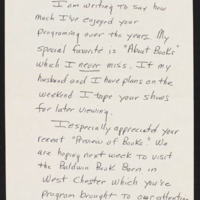 I am writing to say how
much I've enjoyed your
programing over the years. My
special favorite is "About Books"
which I never miss. If my
husband and I have plans on the
weekend I tape your shows
for later viewing.
I especially appreciated your
recent "Preview of Books." We
are hoping next week to visit
the Baldwin Book Barn in
West Chester which you're
program brought to our attention